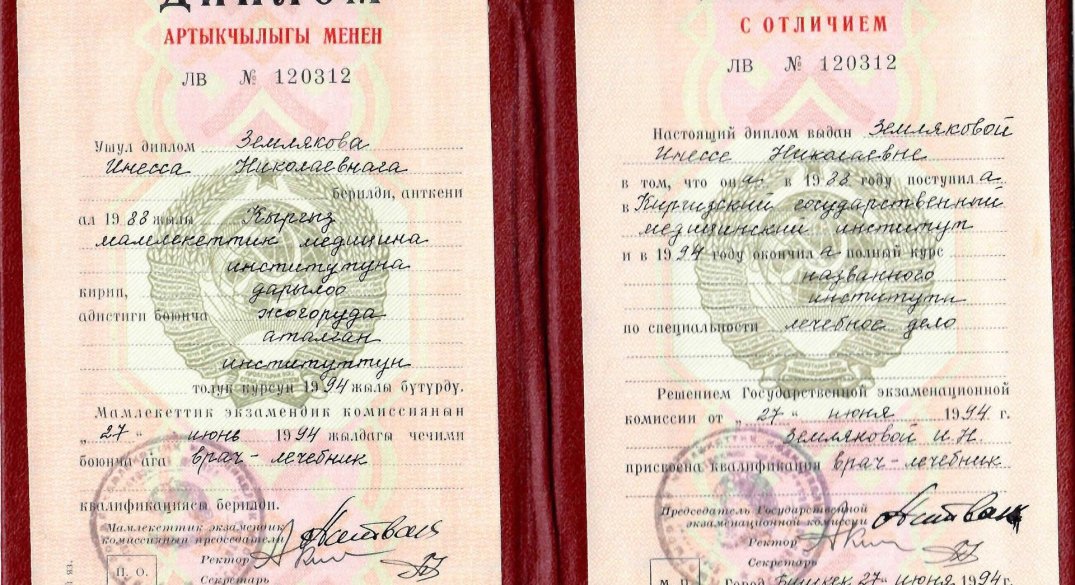 ДИПЛОМ
АРТЫКЧЫЛЫГЫ МЕНЕН
ЛВ № 120312
Ушул диплом Землякова
Инесса Николаевнага
берилди, анткени
ал 1988 жылы Кыргыз
мамлекеттик медицина
институтуна
кирип, дарылоо
адистиги боюнча жогоруда
аталган
институттун
толук курсун 1994 жылы бүтүрдү.
Мамлекеттик экзамендик комиссиянын
„27“ июнь 1994 жылдагы чечими
боюнча ага врач-лечебник
квалификациясы берилди.
Мамлекеттик экзамендик
комиссиянын председатели
Ректор
Секретарь
П. О.
яз.
С ОТЛИЧИЕМ
ЛВ № 120312
Настоящий диплом выдан Земляковой
Инессе Николаевне
в том, что она в 1988 году поступила
в Киргизский государственный
медицинский институт
и в 1994 году окончила полный курс
названного
института
по специальности лечебное дело
Решением Государственной экзаменационной
комиссии от „27“ июня 1994 г.
Земляковой И.Н.
присвоена квалификация врач-лечебник
Председатель Государственной
экзаменационной комиссии
Ректор
Секретарь
М. П. Город Бишкек 27 июня 1994 г.